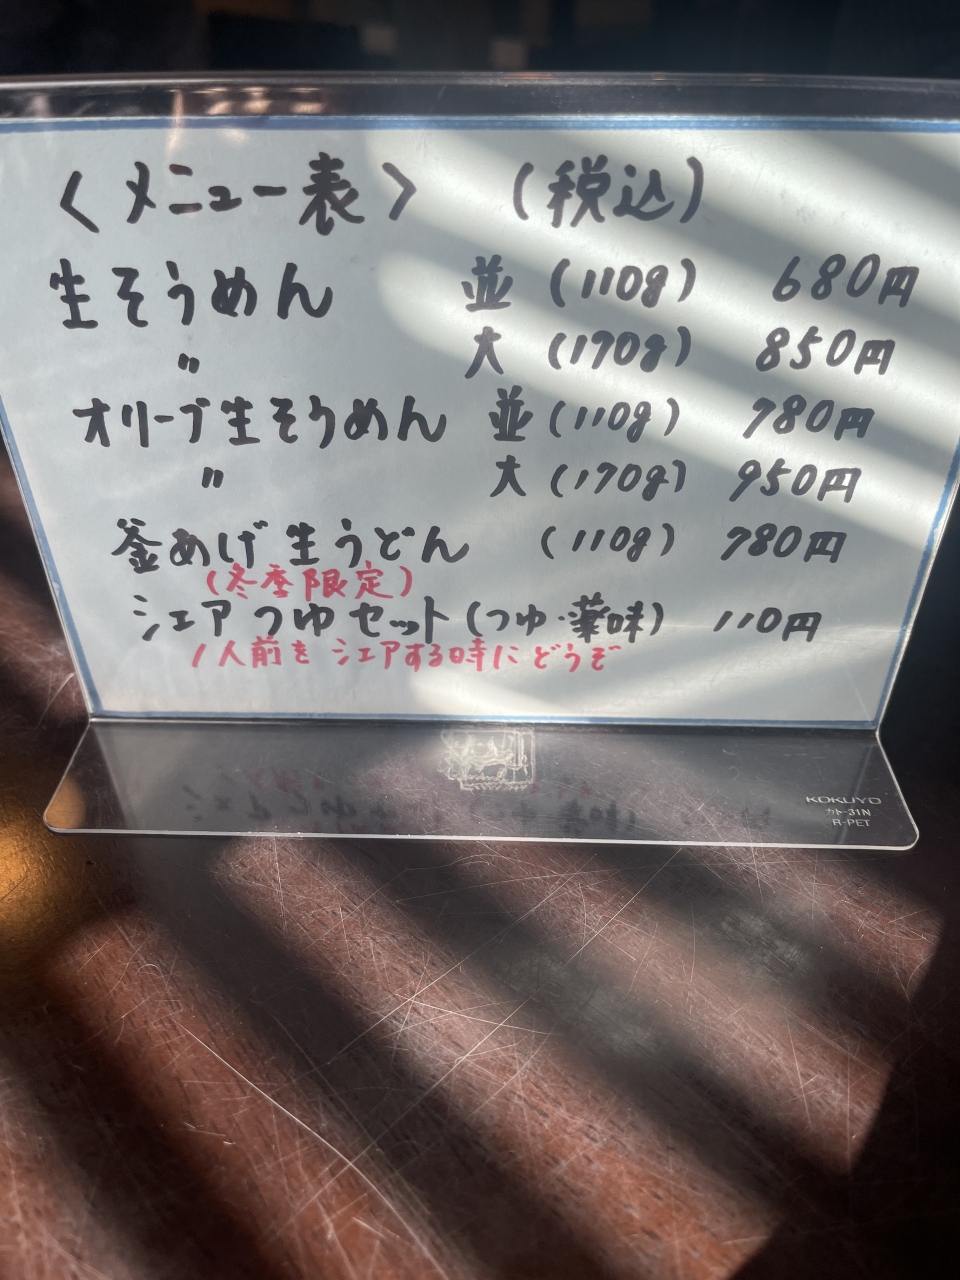 〈メニュー表〉 (税込)
生そうめん 並 (110g) 680円
〃 大 (170g) 850円
オリーブ生そうめん 並 (110g) 780円
〃 大 (170g) 950円
釜あげ生うどん (110g) 780円
(冬季限定)
シェアつゆセット(つゆ・薬味) 110円
1人前をシェアする時にどうぞ
KOKUYO
カト-31N
R-PET